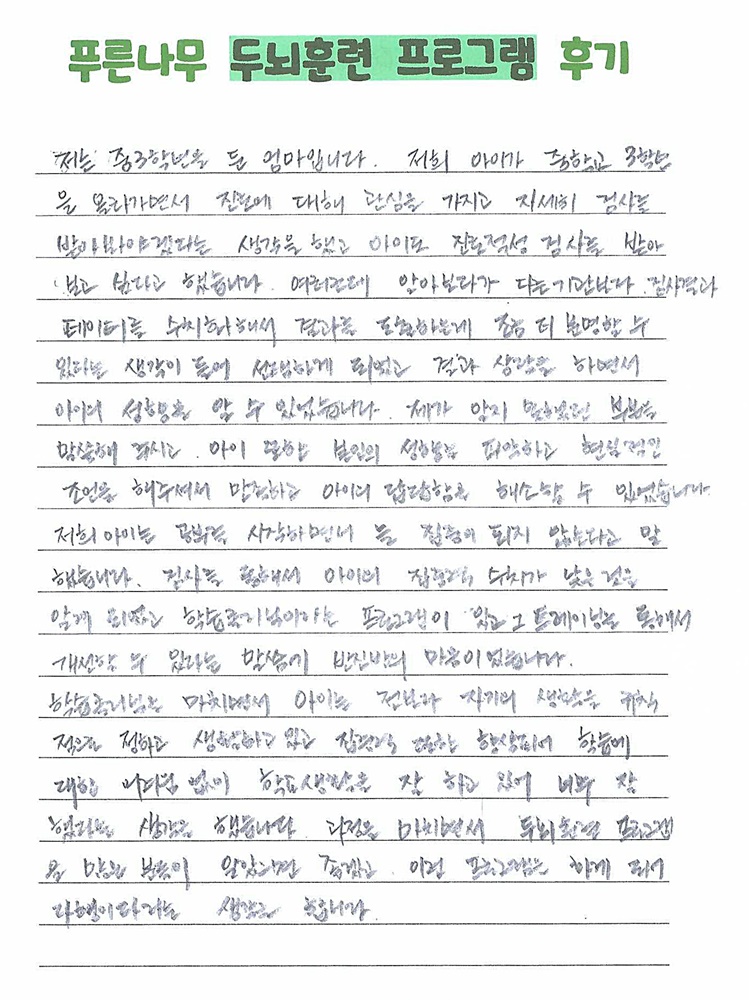 푸른나무 두뇌훈련 프로그램 후기
저는 중3학년을 둔 엄마입니다. 저희 아이가 중학교 3학년
을 올라가면서 진로에 대해 관심을 가지고 자세히 검사를
받아봐야겠다는 생각을 했고 아이도 진로적성 검사를 받아
보고 싶다고 했습니다. 여러군데 알아보다가 다른기관보다 검사결과
데이터를 수치화해서 결과를 도출하는게 좀 더 분명할 수
있다는 생각이 들어 선택하게 되었고 결과 상담을 하면서
아이의 성향을 알 수 있었습니다. 제가 알지 못했던 부분을
말씀해 주시고 아이 또한 본인의 성향을 파악하고 현실적인
조언을 해주셔서 만족하고 아이의 답답함을 해소할 수 있었습니다.
저희 아이는 공부를 시작하면서 늘 집중이 되지 않는다고 말
했습니다. 검사를 통해서 아이의 집중력 수치가 낮은 것을
알게 되었고 학습클리닉이라는 프로그램이 있고 그 트레이닝을 통해서
개선할 수 있다는 말씀에 반신반의 마음이었습니다.
학습클리닉을 마치면서 아이는 전보다 자기의 생활을 규칙
적으로 정하고 생활하고 있고 집중력 또한 향상되어 학습에
대한 어려움 없이 학교생활을 잘 하고 있어 너무 잘
했다는 생각을 했습니다. 과정을 마치면서 두뇌훈련 프로그램
을 많은 분들이 알았으면 좋겠고 이런 프로그램을 하게 되어
다행이다라는 생각을 했습니다.